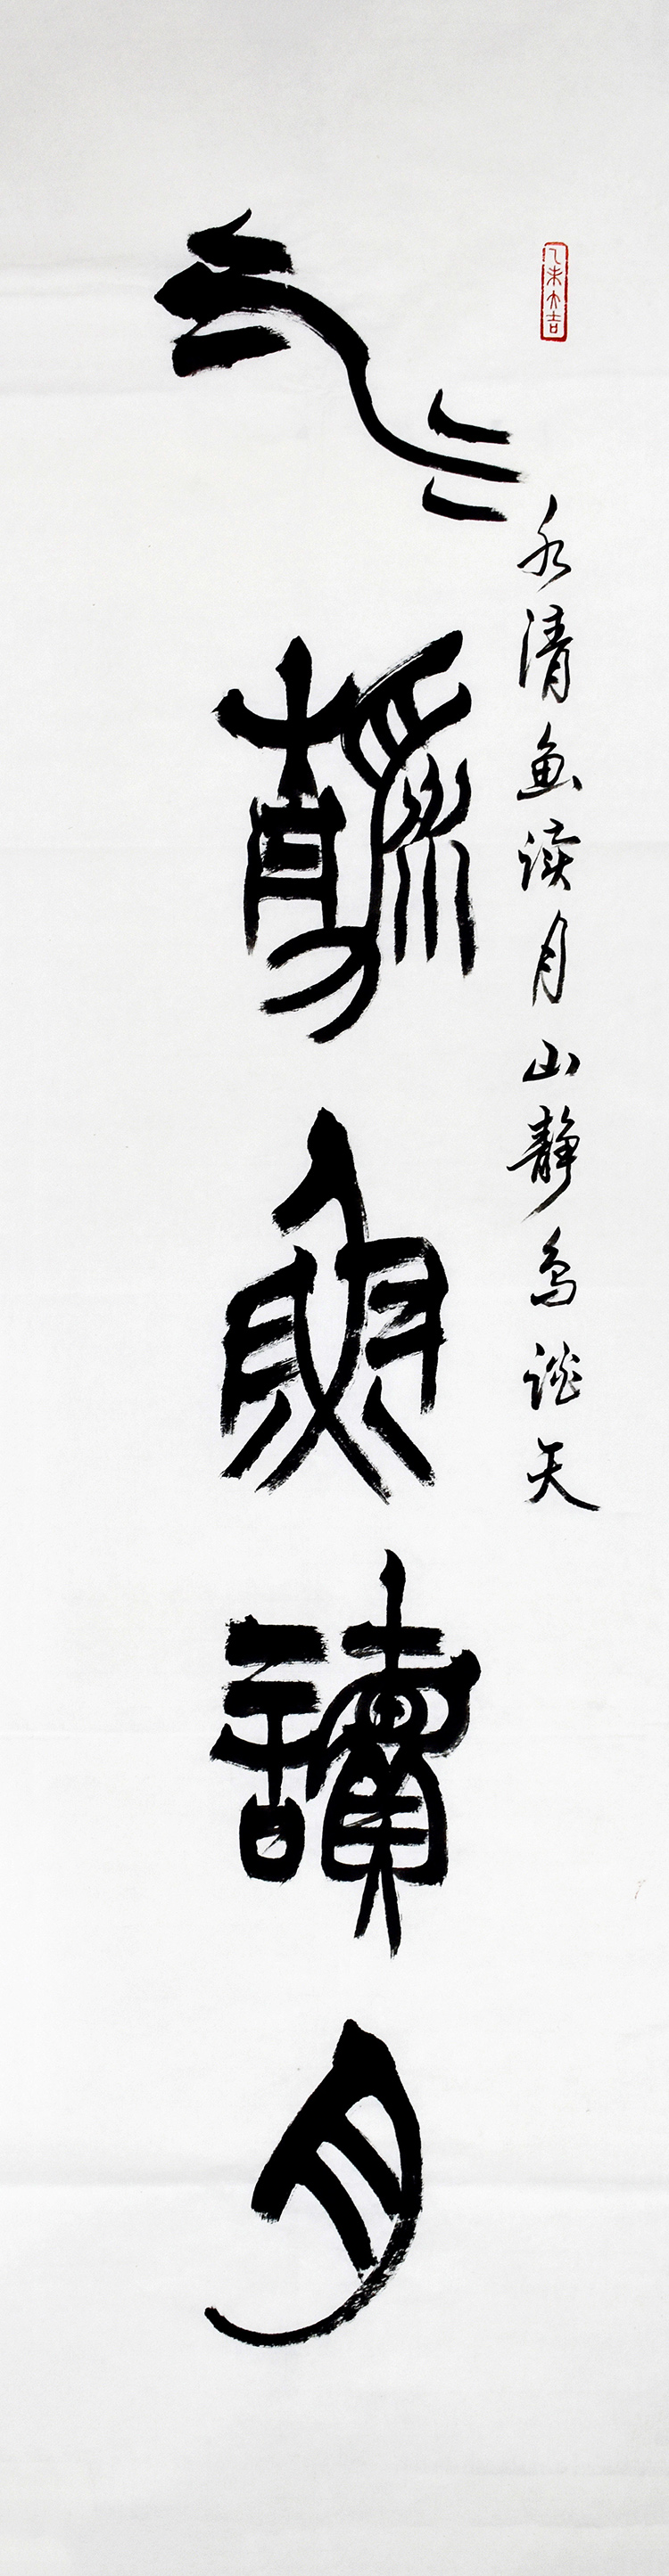 乙未大吉
水清鱼读月山静鸟谈天
水清魚讀月